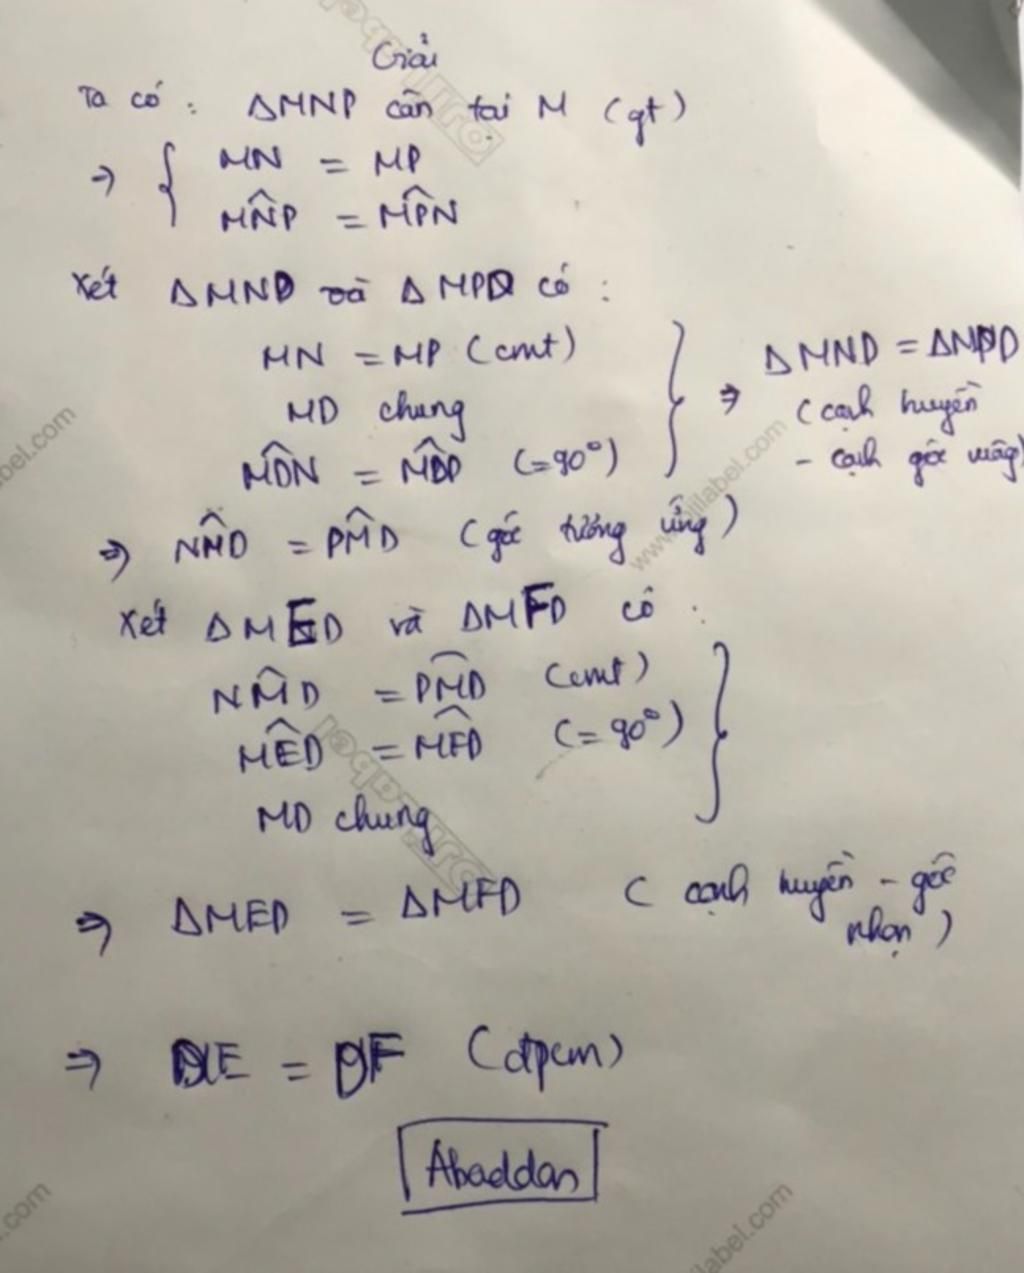 Giải
Ta có : ΔMNP cân tại M (gt)
⇒ { MN = MP
MN̂P = MP̂N
Xét ΔMND và ΔMPD có :
MN = MP (cmt)
MD chung
MD̂N = MD̂P (=90°)
} ⇒ ΔMND = ΔMPD
(cạnh huyền
- cạnh góc vuông)
⇒ NM̂D = PM̂D (góc tương ứng)
Xét ΔMED và ΔMFD có :
NM̂D = PM̂D (cmt)
MÊD = MF̂D (= 90°)
MD chung
}
⇒ ΔMED = ΔMFD ( cạnh huyền - góc
nhọn )
⇒ DE = DF (đpcm)
Abaddon